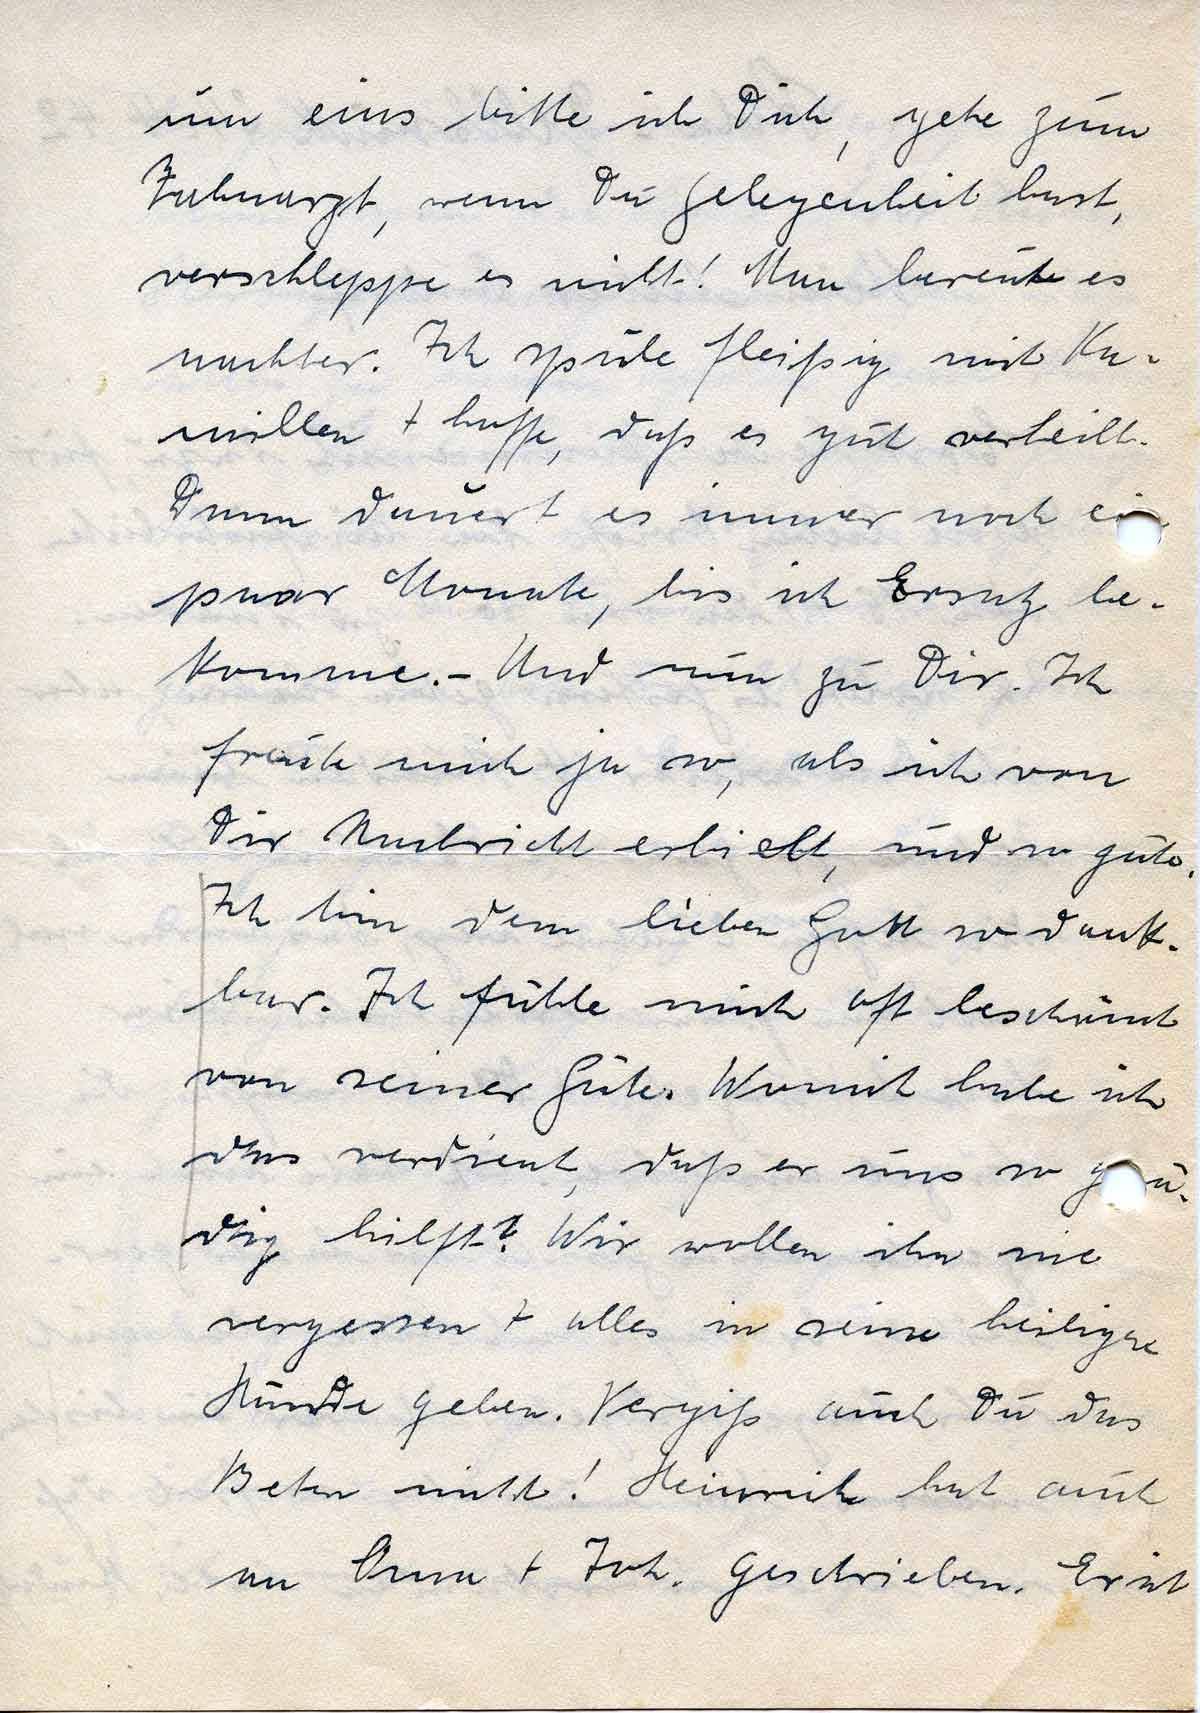 um eins bitte ich Dich, gehe zum
Zahnarzt, wenn Du Gelegenheit hast,
verschleppe es nicht! Man bereut es
nachher. Ich spüle fleißig mit Ka-
millen + hoffe, daß es gut verheilt.
Dann dauert es immer noch ein
paar Monate, bis ich Ersatz be-
komme. - Und nun zu Dir. Ich
freute mich ja so, als ich von
Dir Nachricht erhielt, und so gute.
Ich bin dem lieben Gott so dank-
bar. Ich fühle mich oft beschämt
von seiner Güte. Womit habe ich
das verdient, daß er uns so gnä-
dig hilft? Wir wollen ihn nie
vergessen + alles in seine heilige
Hände geben. Vergiß auch Du das
Beten nicht! Heinrich hat auch
an Anna + Joh. geschrieben. Er ist